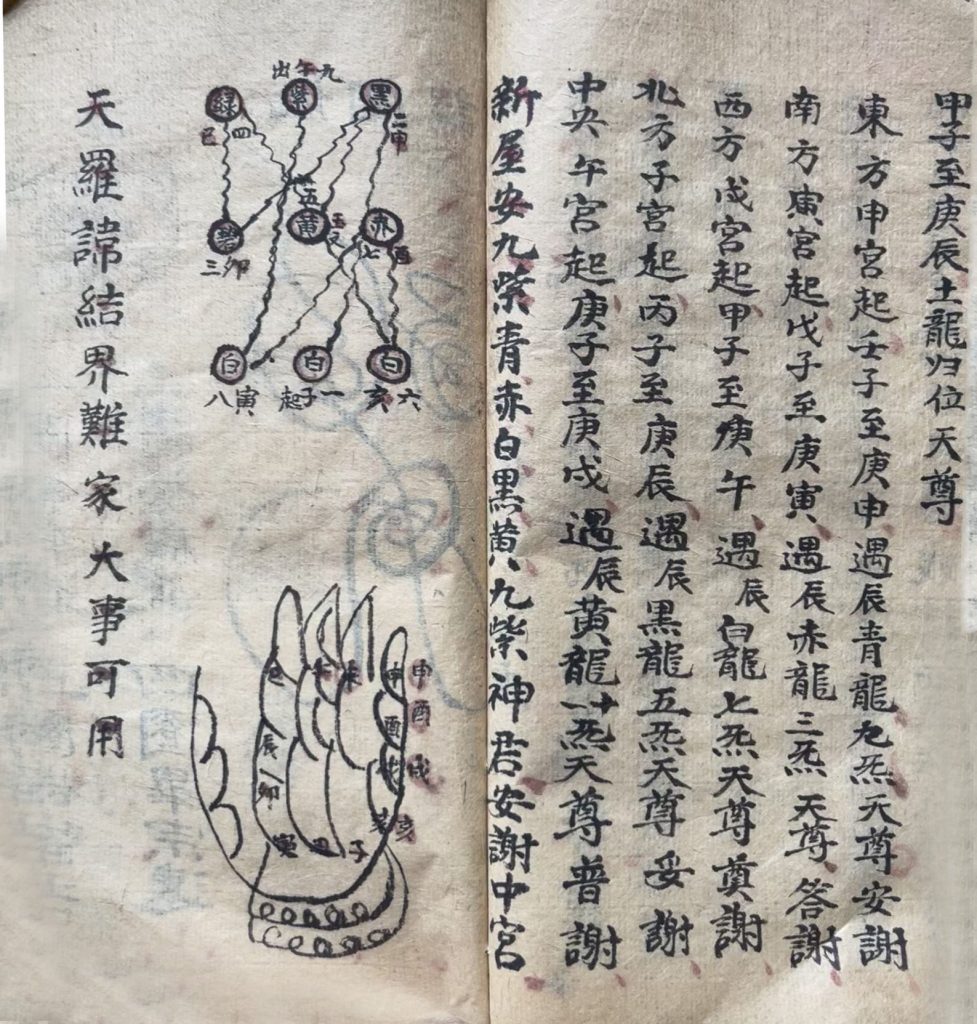 甲子至庚辰土龍归位天尊
東方申宮起壬子至庚申遇辰青龍九炁天尊安謝
南方寅宮起戊子至庚寅遇辰赤龍三炁天尊答謝
西方戌宮起甲子至庚午遇辰白龍七炁天尊奠謝
北方子宮起丙子至庚辰遇辰黑龍五炁天尊妥謝
中央午宮起庚子至庚戌遇辰黃龍十一炁天尊普謝
新屋安九紫青赤白黑黄九紫神君安謝中宮
出午九
綠 紫 黑
巳 四 二申
五
碧 黃 赤
三卯 七酉
白 白 白
八寅 起子一 亥六
巳 午 未 申 申
辰 酉 酉
卯 戌 戌
寅 丑 子 亥 亥
天羅諱結界難家大事可用